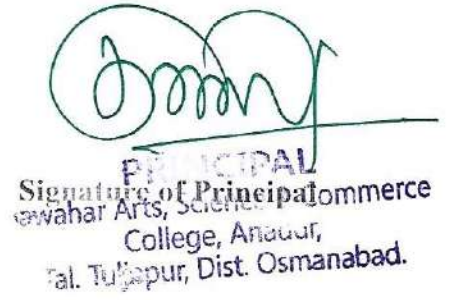 PRINCIPAL
Signature of Principal
Jawahar Arts, Science Commerce
College, Anadur,
Tal. Tuljapur, Dist. Osmanabad.